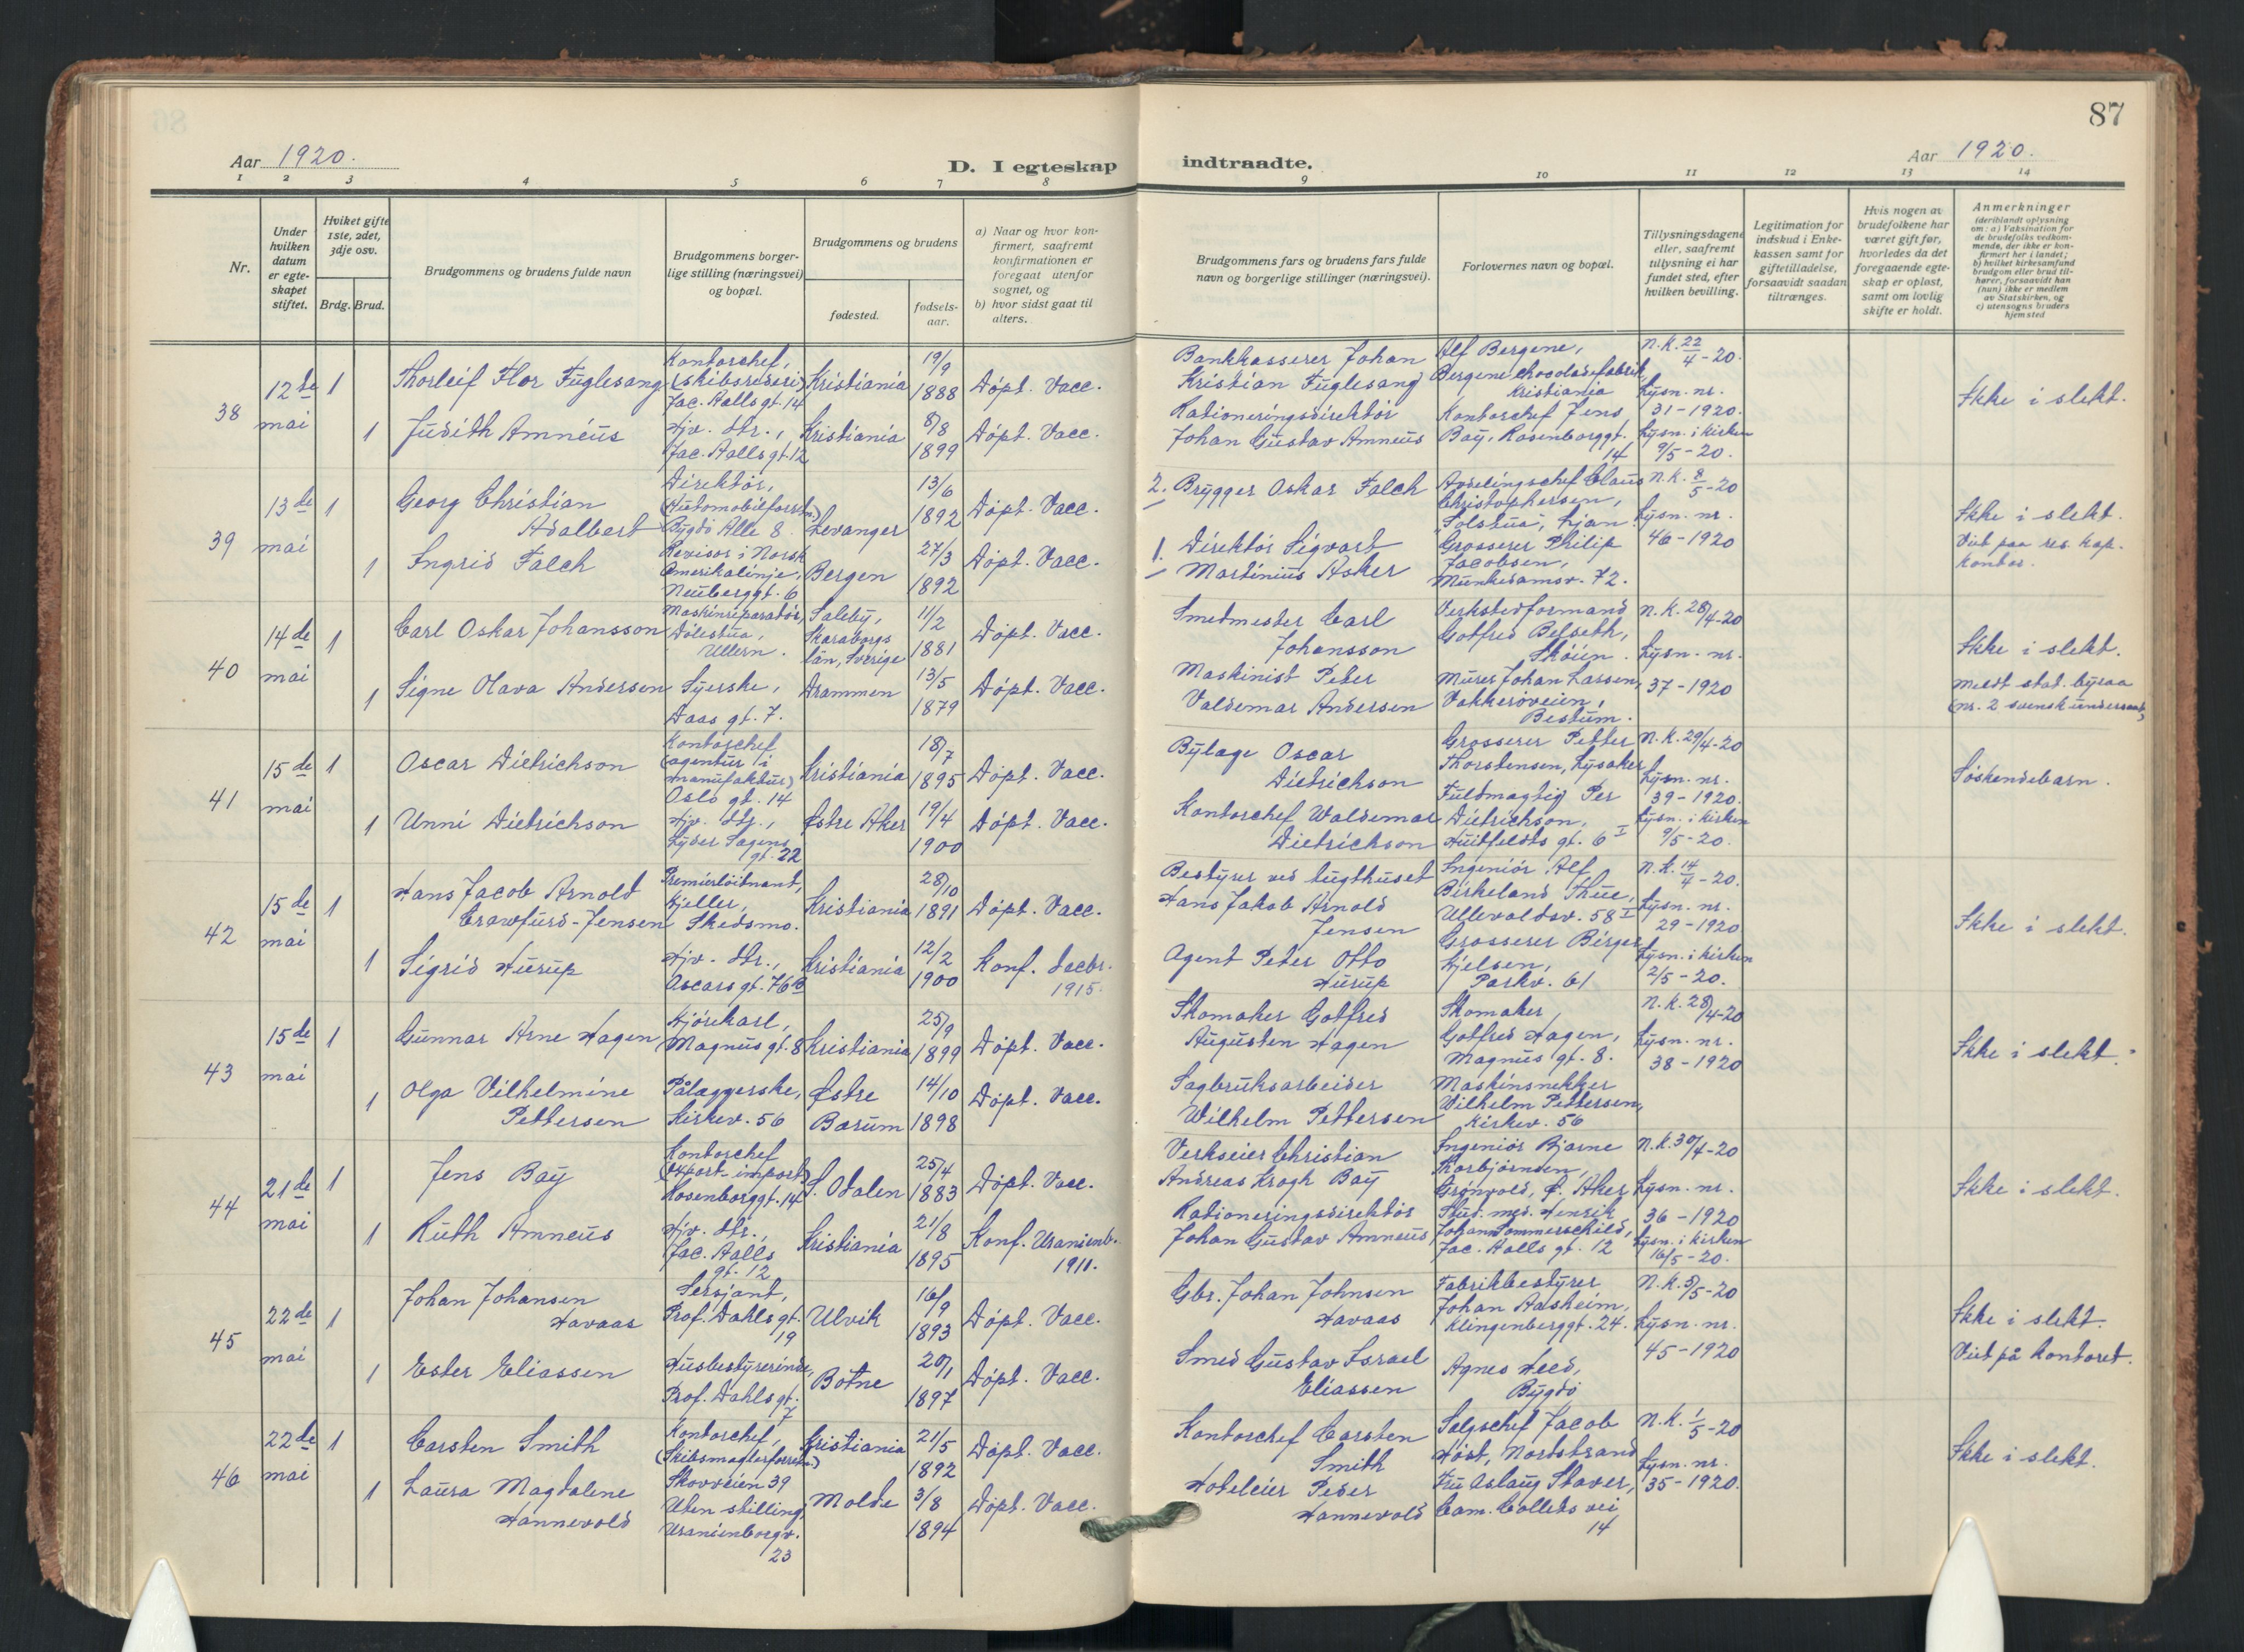 87
Aar 1920.
D. I egteskap indtraadte.
Aar 1920.
1 2 3 4 5 6 7 8 9 10 11 12 13 14
Nr.
Under
hvilken
datum
er egte-
skapet
stiftet.
Hviket gifte
1ste, 2det,
3dje osv.
Brdg. Brud.
Brudgommens og brudens fulde navn
Brudgommens borger-
lige stilling (næringsvei)
og bopæl.
Brudgommens og brudens
fødested.
fødsels-
aar.
a) Naar og hvor kon-
firmert, saafremt
konfirmationen er
foregaat utenfor
sognet, og
b) hvor sidst gaat til
alters.
Brudgommens fars og brudens fars fulde
navn og borgerlige stillinger (næringsvei).
Forlovernes navn og bopæl.
Tillysningsdagene
eller, saafremt
tillysning ei har
fundet sted, efter
hvilken bevilling.
Legitimation for
indskud i Enke-
kassen samt for
giftetilladelse,
forsaavidt saadan
tiltrænges.
Hvis nogen av
brudefolkene har
været gift før,
hvorledes da det
foregaaende egte-
skap er opløst,
samt om lovlig
skifte er holdt.
Anmerkninger
(deriblandt oplysning
om: a) Vaksination for
de brudefolks vedkom-
mende, der ikke er kon-
firmert her i landet;
b) hvilket kirkesamfund
brudgom eller brud til-
hører, forsaavidt han
(hun) ikke er medlem
av Statskirken, og
c) utensogns bruders
hjemsted
38
12te
mai
1
Thorleif Flor Fuglesang
Kontorchef,
(skibsrederi)
Jac. Aalls gt. 14
Kristiania
19/9
1888
Døpt. Vacc.
Bankkasserer Johan
Kristian Fuglesang
Alf Bergene,
Bergene Chocoladefabrik,
Kristiania
N.K. 22/4-20.
Lysn. nr.
31-1920.
Lysn. i kirken
9/5-20.
Ikke i slekt.
1
Judith Amnéus
Hjv. dtr.,
Jac. Aalls gt. 12
Kristiania
8/8
1899
Døpt. Vacc.
Rationeringsdirektør
Johan Gustav Amneus
Kontorchef Jens
Bay, Rosenborggt.
14
39
13de
mai
1
Georg Christian
Adalbert
Direktør,
(Automobilforretn.)
Bygdø Alle 8
Levanger
13/6
1892
Døpt. Vacc.
2. Brygger Oskar Falch
Avdelingschef Claus
Christophersen,
"Solstua", Ljan.
N.K. 8/5-20
Lysn. nr.
46-1920
Ikke i slekt.
Viet paa res. kap.
kontor.
1
Ingrid Falch
Revisor i Norsk
Amerikalinje,
Neuberggt. 6
Bergen
27/3
1892
Døpt. Vacc.
1. Direktør Sigvart
Martinius Asker
Grosserer Philip
Jacobsen,
Munkedamsv. 72.
40
14de
mai
1
Carl Oskar Johansson
Maskinreparatør,
Dølestua,
Ullern.
Saleby,
Skaraborgs
län, Sverige
11/2
1881
Døpt. Vacc.
Smedmester Carl
Johansson
Verkstedformand
Gotfred Belseth,
Skøien.
N.K. 28/4-20
Lysn. nr.
37-1920
Ikke i slekt.
Meldt stat. byraa
(nr. 2 svensk undersaat)
1
Signe Olava Andersen
Syerske,
Daas gt. 7.
Drammen
13/5
1879
Døpt. Vacc.
Maskinist Peter
Valdemar Andersen
Murer Johan Larsen,
Vækkerøveien,
Bestum.
41
15de
mai
1
Oscar Dietrichson
Kontorchef
(agentur i
manufaktur)
Oslo gt. 14
Kristiania
18/7
1895
Døpt. Vacc.
Bylæge Oscar
Dietrichson
Grosserer Petter
Thorstensen, Lysaker
N.K. 29/4-20
Lysn. nr.
39-1920.
Lysn. i kirken
9/5-20.
Søskendebarn.
1
Unni Dietrichson
Hjv. dtr.,
Lyder Sagens
gt. 22
Østre Aker
19/4
1900
Døpt. Vacc.
Kontorchef Waldemar
Dietrichson
Fuldmægtig Per
Dietrichson,
Huitfeldts gt. 6 I
42
15de
mai
1
Hans Jacob Arnold
Crawfurd-Jensen
Premierløitnant,
Kjeller,
Skedsmo.
Kristiania
28/10
1891
Døpt. Vacc.
Bestyrer ved tugthuset
Hans Jakob Arnold
Jensen
Ingeniør Alf
Birkeland Thue,
Ullevoldsv. 58 I
N.K. 14/4-20.
Lysn. nr.
29-1920
Lysn. i kirken
2/5-20.
Ikke i slekt.
1
Sigrid Hurup
Hjv. dtr.,
Oscars gt. 76 B
Kristiania
12/2
1900
Konf. decbr.
1915.
Agent Peter Otto
Hurup
Grosserer Birger
Kjelsen,
Parkv. 61
43
15de
mai
1
Gunnar Arne Hagen
Kjørekarl,
Magnus gt. 8
Kristiania
25/9
1899
Døpt. Vacc.
Skomaker Gotfred
Augusten Hagen
Skomaker
Gotfred Hagen,
Magnus gt. 8.
N.K. 28/4-20
Lysn. nr.
38-1920
Ikke i slekt.
1
Olga Vilhelmine
Pettersen
Pålæggerske,
Kirkev. 56
Østre
Bærum
14/10
1898
Døpt. Vacc.
Sagbruksarbeider
Wilhelm Pettersen
Maskinsnekker
Wilhelm Pettersen,
Kirkev. 56
44
21de
mai
1
Jens Bay
Kontorchef
(export-import)
Rosenborggt. 14
S. Odalen
25/4
1883
Døpt. Vacc.
Verkseier Christian
Andreas Krogh Bay
Ingeniør Bjarne
Thorbjørnsen,
Grønvold, Ø. Aker
N.K. 30/4-20
Lysn. nr.
36-1920
Lysn. i kirken
16/5-20.
Ikke i slekt.
1
Ruth Amneus
Hjv. dtr.,
Jac. Aalls
gt. 12
Kristiania
21/8
1895
Konf. Uranienb.
1911.
Rationeringsdirektør
Johan Gustav Amneus
Stud. med. Henrik
Johan Sommerschild,
Jac. Aalls gt. 12
45
22de
mai
1
Johan Johansen
Havaas
Sersjant,
Prof. Dahls gt.
19
Ulvik
16/9
1893
Døpt. Vacc.
Gbr. Johan Johnsen
Havaas
Fabrikbestyrer
Johan Aasheim,
Klingenberggt. 24.
N.K. 5/5-20
Lysn. nr.
45-1920
Ikke i slekt.
Viet på kontoret.
1
Ester Eliassen
Husbestyrerinde,
Prof. Dahls gt.
7
Botne
20/1
1897
Døpt. Vacc.
Smed Gustav Israel
Eliassen
Agnes Lied,
Bygdø
46
22de
mai
1
Carsten Smith
Kontorchef,
(Skibsmæglerforretn.)
Skovveien 39
Kristiania
21/5
1892
Døpt. Vacc.
Kontorchef Carsten
Smith
Salgschef Jacob
Høst, Nordstrand
N.K. 1/5-20
Lysn. nr.
35-1920.
Ikke i slekt.
1
Laura Magdalene
Hannevold
Uten stilling,
Uranienborgv.
23
Molde
3/8
1894
Døpt. Vacc.
Hoteleier Peder
Hannevold
Fru Aslaug Staver,
Cam. Colletts vei
14